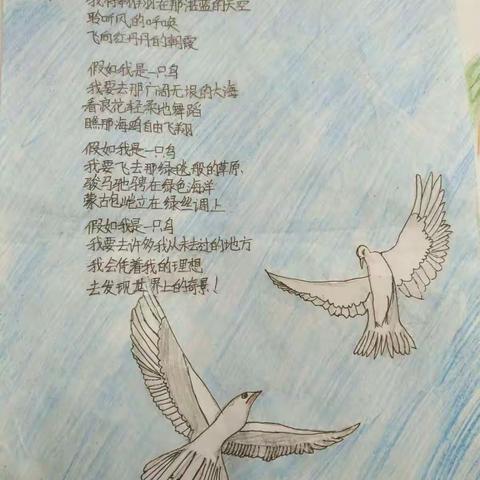 我将翱翔在那湛蓝的天空
聆听风的呼唤
飞向红丹丹的朝霞
假如我是一只鸟
我要去那广阔无垠的大海
看浪花轻柔地舞蹈
瞧那海鸥自由飞翔
假如我是一只鸟
我要飞去那绿毯般的草原
骏马驰骋在绿色海洋
蒙古包屹立在绿丝绸上
假如我是一只鸟
我要去许多我从未去过的地方
我会凭着我的理想
去发现世界上的奇景！